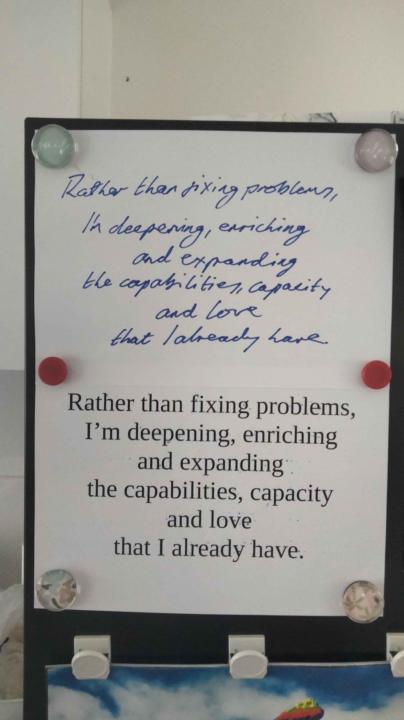 Rather than fixing problems,
I'm deepening, enriching
and expanding
the capabilities, capacity
and love
that I already have.
Rather than fixing problems,
I’m deepening, enriching
and expanding
the capabilities, capacity
and love
that I already have.